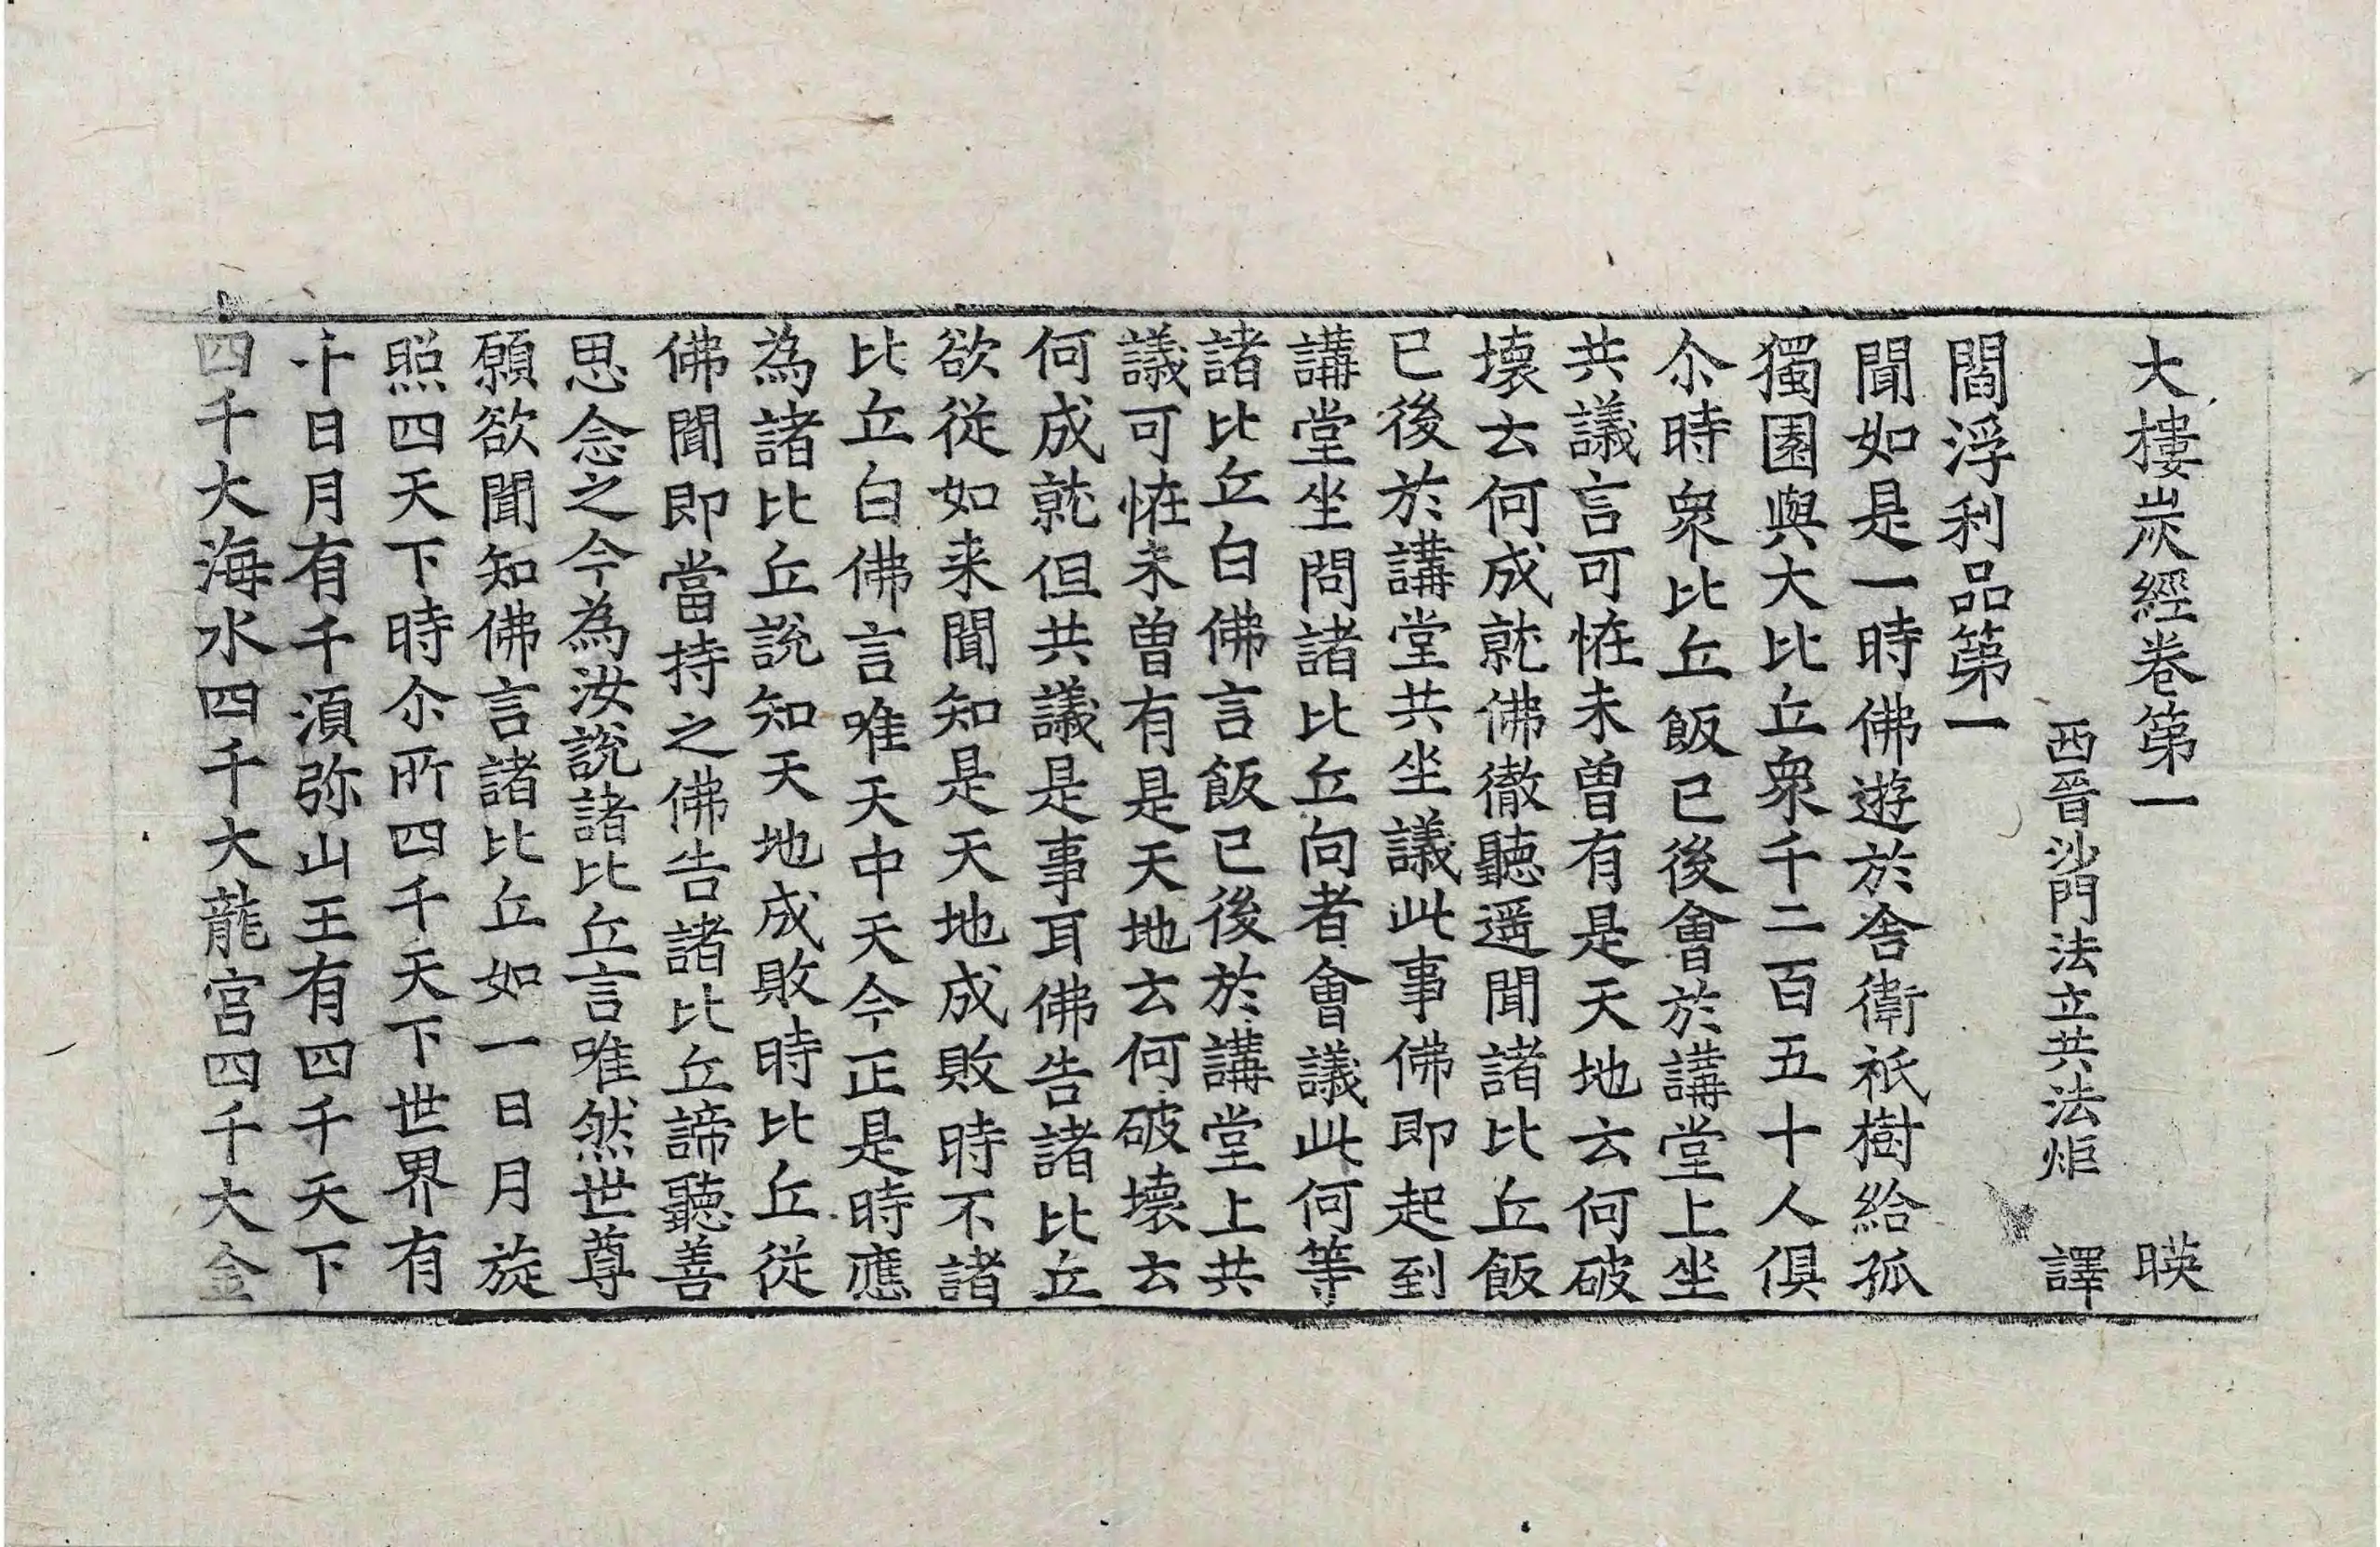 大樓炭經卷第一 暎
西晉沙門法立共法炬 譯
閻浮利品第一
聞如是一時佛遊於舎衛祇樹給孤
獨園與大比丘衆千二百五十人俱
尒時衆比丘飯已後會於講堂上坐
共議言可恠未曽有是天地云何破
壞去何成就佛徹聽遥聞諸比丘飯
已後於講堂共坐議此事佛即起到
講堂坐問諸比丘向者會議此何等
諸比丘白佛言飯已後於講堂上共
議可恠未曽有是天地云何破壞云
何成就但共議是事耳佛告諸比丘
欲從如来聞知是天地成敗時不諸
比丘白佛言唯天中天今正是時應
為諸比丘說知天地成敗時比丘從
佛聞即當持之佛告諸比丘諦聽善
思念之今為汝說諸比丘言唯然世尊
願欲聞知佛言諸比丘如一日月旋
照四天下時尒所四千天下世界有
千日月有千湏弥山王有四千天下
四千大海水四千大龍宮四千大金